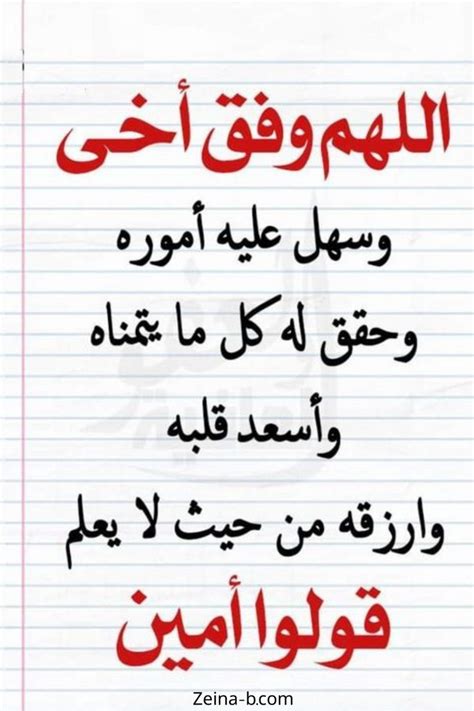 اللهم وفق أخى
وسهل عليه أموره
وحقق له كل ما يتمناه
وأسعد قلبه
وارزقه من حيث لا يعلم
قولوا أمين
Zeina-b.com